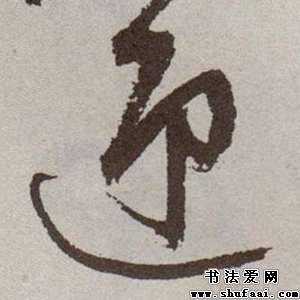 迎
书法爱网
www.shufaai.com